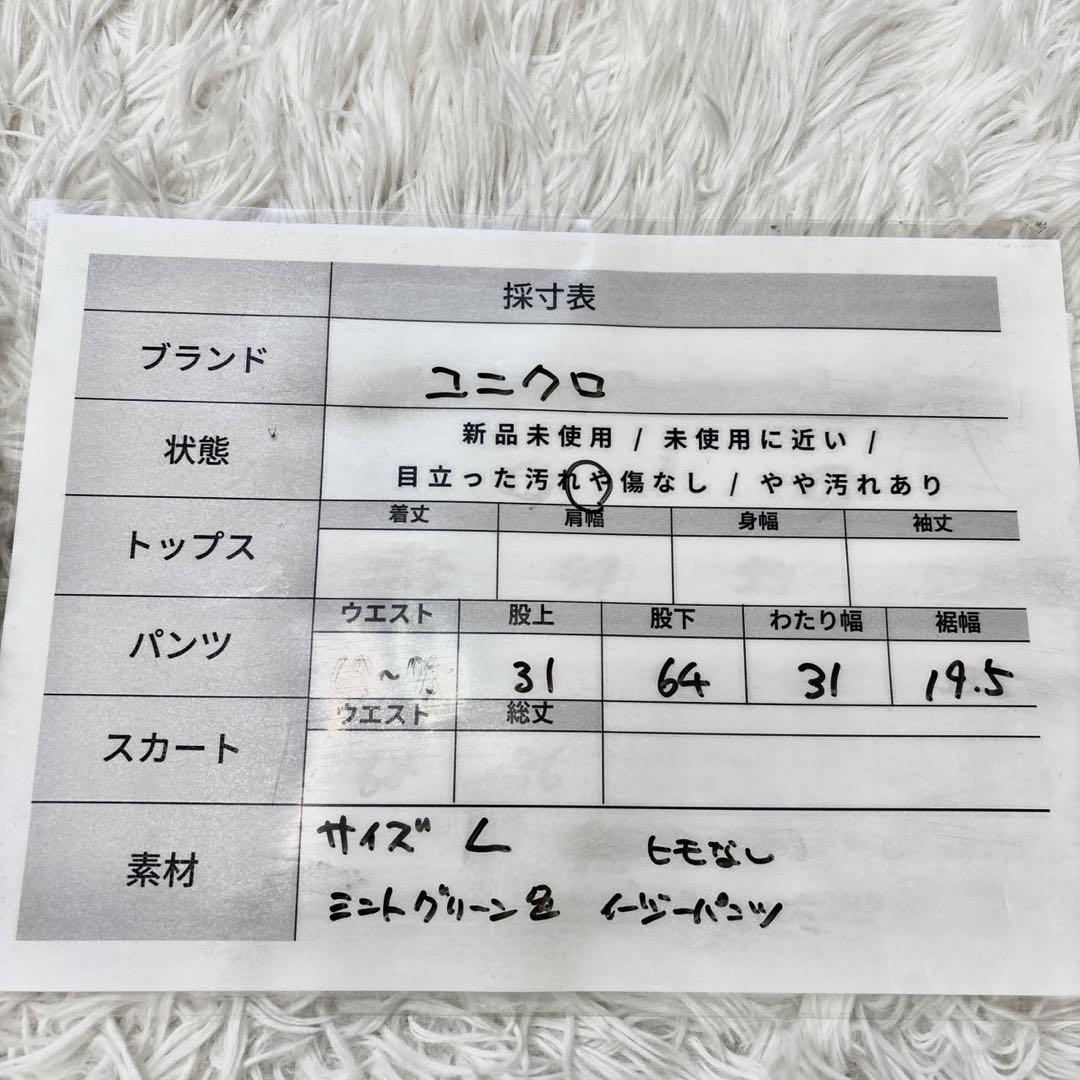 採寸表
ブランド ユニクロ
状態 新品未使用 / 未使用に近い /
目立った汚れや傷なし / やや汚れあり
トップス 着丈 肩幅 身幅 袖丈
パンツ ウエスト 股上 股下 わたり幅 裾幅
~ 31 64 31 19.5
スカート ウエスト 総丈
素材 サイズ L ヒモなし
ミントグリーン イージーパンツ